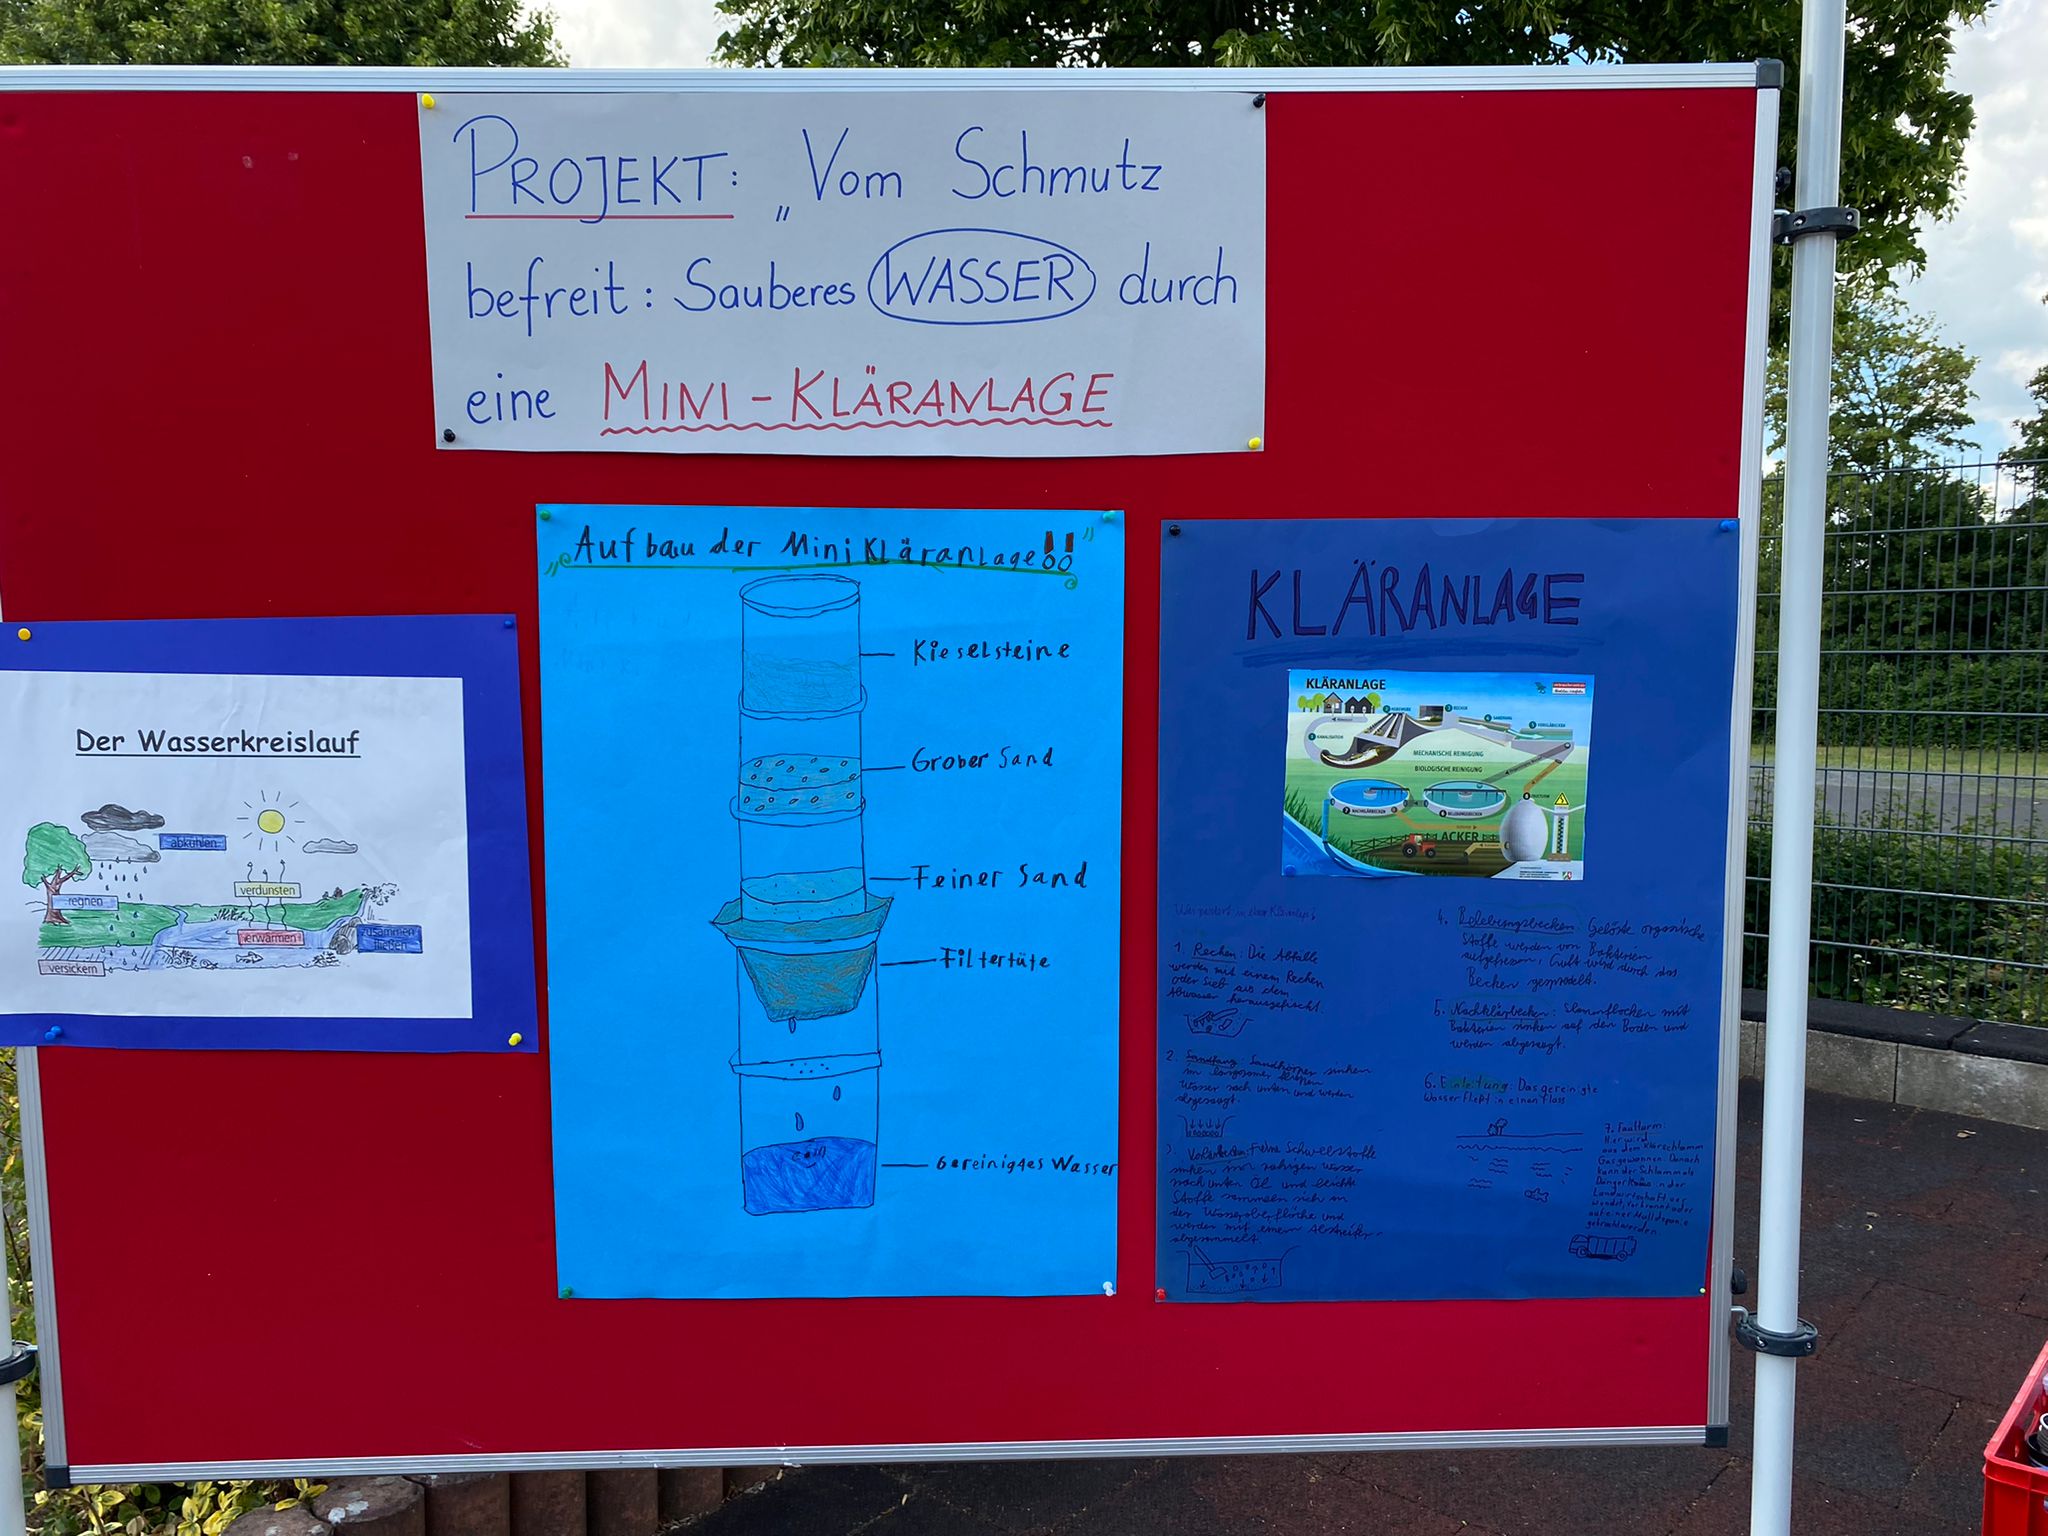 PROJEKT: „Vom Schmutz
befreit: Sauberes WASSER durch
eine MINI-KLÄRANLAGE
Der Wasserkreislauf
abkühlen
verdunsten
regnen
erwärmen
zusammen
fließen
versickern
„Aufbau der Mini Kläranlage!!"
Kieselsteine
Grober Sand
Feiner Sand
Filtertüte
Gereinigtes Wasser
KLÄRANLAGE
KLÄRANLAGE
MECHANISCHE REINIGUNG
BIOLOGISCHE REINIGUNG
KANALISATION
RECHEN
SANDFANG
VORKLÄRBECKEN
NACHKLÄRBECKEN
BELEBUNGSBECKEN
ACKER
1. Rechen: Die Abfälle
werden mit einem Rechen
oder Sieb aus dem
Abwasser herausgefischt.
2. Sandfang: Sandkörper sinken
im langsamer fließen
Wasser nach unten und werden
abgesaugt.
3. Vorklärbecken: Feine Schwebstoffe
sinken im ruhigen Wasser
nach unten Öl und leichte
Stoffe sammeln sich an
der Wasseroberfläche und
werden mit einem Abstreifer
abgesammelt.
4. Belebungsbecken: Gelöste organische
Stoffe werden von Bakterien
aufgefressen, Luft wird durch das
Becken gesprudelt.
5. Nachklärbecken: Flocken mit
Bakterien sinken auf den Boden und
werden abgesaugt.
6. Einleitung: Das gereinigte
Wasser fließt in einen Fluss
7. Faulturm:
Hier wird
aus dem Klärschlamm
Gas gewonnen. Danach
kann der Schlamm als
Dünger in der
Landwirtschaft
verbrannt oder
auf einer Mülldeponie
gebracht werden.